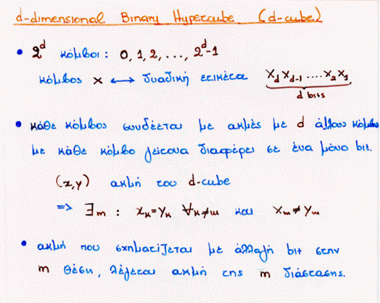 d-dimensional Binary Hypercube (d-cube)
• 2^d κόμβοι: 0, 1, 2, ..., 2^d-1
κόμβος x ⟷ δυαδική ετικέτα x_d x_{d-1} .... x_2 x_1
d bits
• κάθε κόμβος συνδέεται με ακμές με d άλλους κόμβους
με κάθε κόμβο γείτονα διαφέρει σε ένα μόνο bit.
(x,y) ακμή του d-cube
=> ∃m : x_κ=y_κ ∀κ≠m και x_m≠y_m
• ακμή που σχηματίζεται με αλλαγή bit στην
m θέση, λέγεται ακμή της m διάστασης.